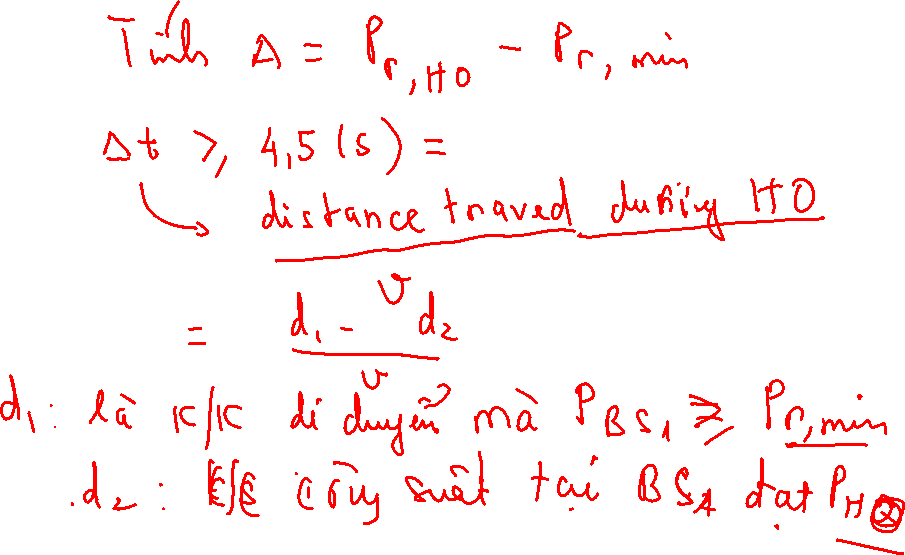 Tính Δ = Pr,HO - Pr,min
Δt ≥ 4,5 (s) =
distance traved during HO
v
= d1 - d2
v
d1: là K/K di chuyển mà PBS1 ≥ Pr,min
d2: công suất tại BS1 đạt PH